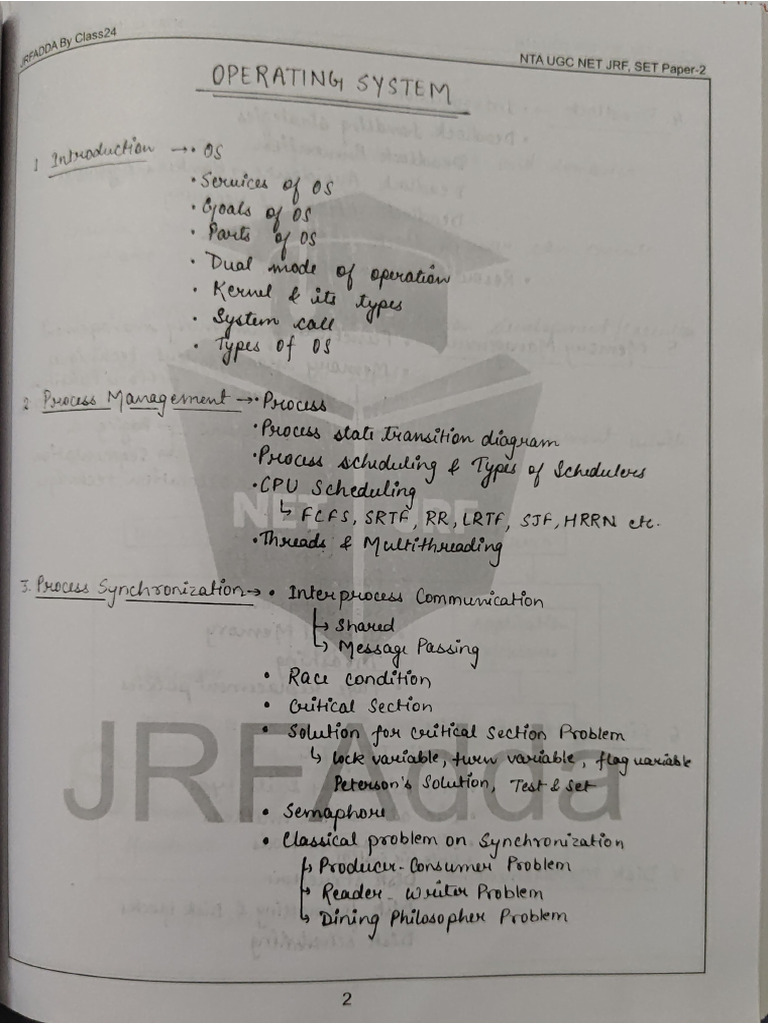 JRFADDA By Class24
NTA UGC NET JRF, SET Paper-2
OPERATING SYSTEM
1 Introduction → • OS
• Services of OS
• Goals of OS
• Parts of OS
• Dual mode of operation
• Kernel & its types
• System call
• Types of OS
2 Process Management → • Process
• Process state transition diagram
• Process scheduling & Types of Schedulers
• CPU Scheduling
↳ FCFS, SRTF, RR, LRTF, SJF, HRRN etc.
• Threads & Multithreading
3. Process Synchronization → • Interprocess Communication
↳ Shared
↳ Message Passing
• Race condition
• Critical Section
• Solution for critical Section Problem
↳ lock variable, turn variable, flag variable
Peterson's Solution, Test & Set
• Semaphore
• Classical problem on Synchronization
↳ Producer-Consumer Problem
↳ Reader-Writer Problem
↳ Dining Philosopher Problem
NET JRF
JRFAdda
2